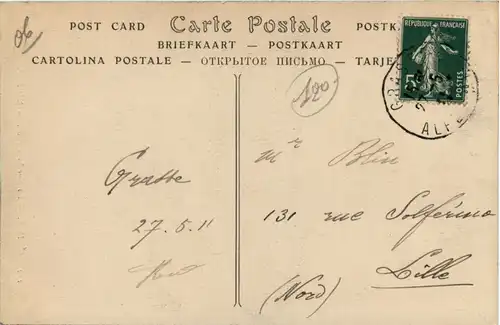 06
POST CARD Carte Postale POSTK
BRIEFKAART — POSTKAART
CARTOLINA POSTALE — ОТКРЫТОЕ ПИСЬМО — TARJE
RÉPUBLIQUE FRANÇAISE
5
POSTES
ALP
120
Grasse
27.5.11
Mr Blin
131 rue Solférino
Lille
(Nord)